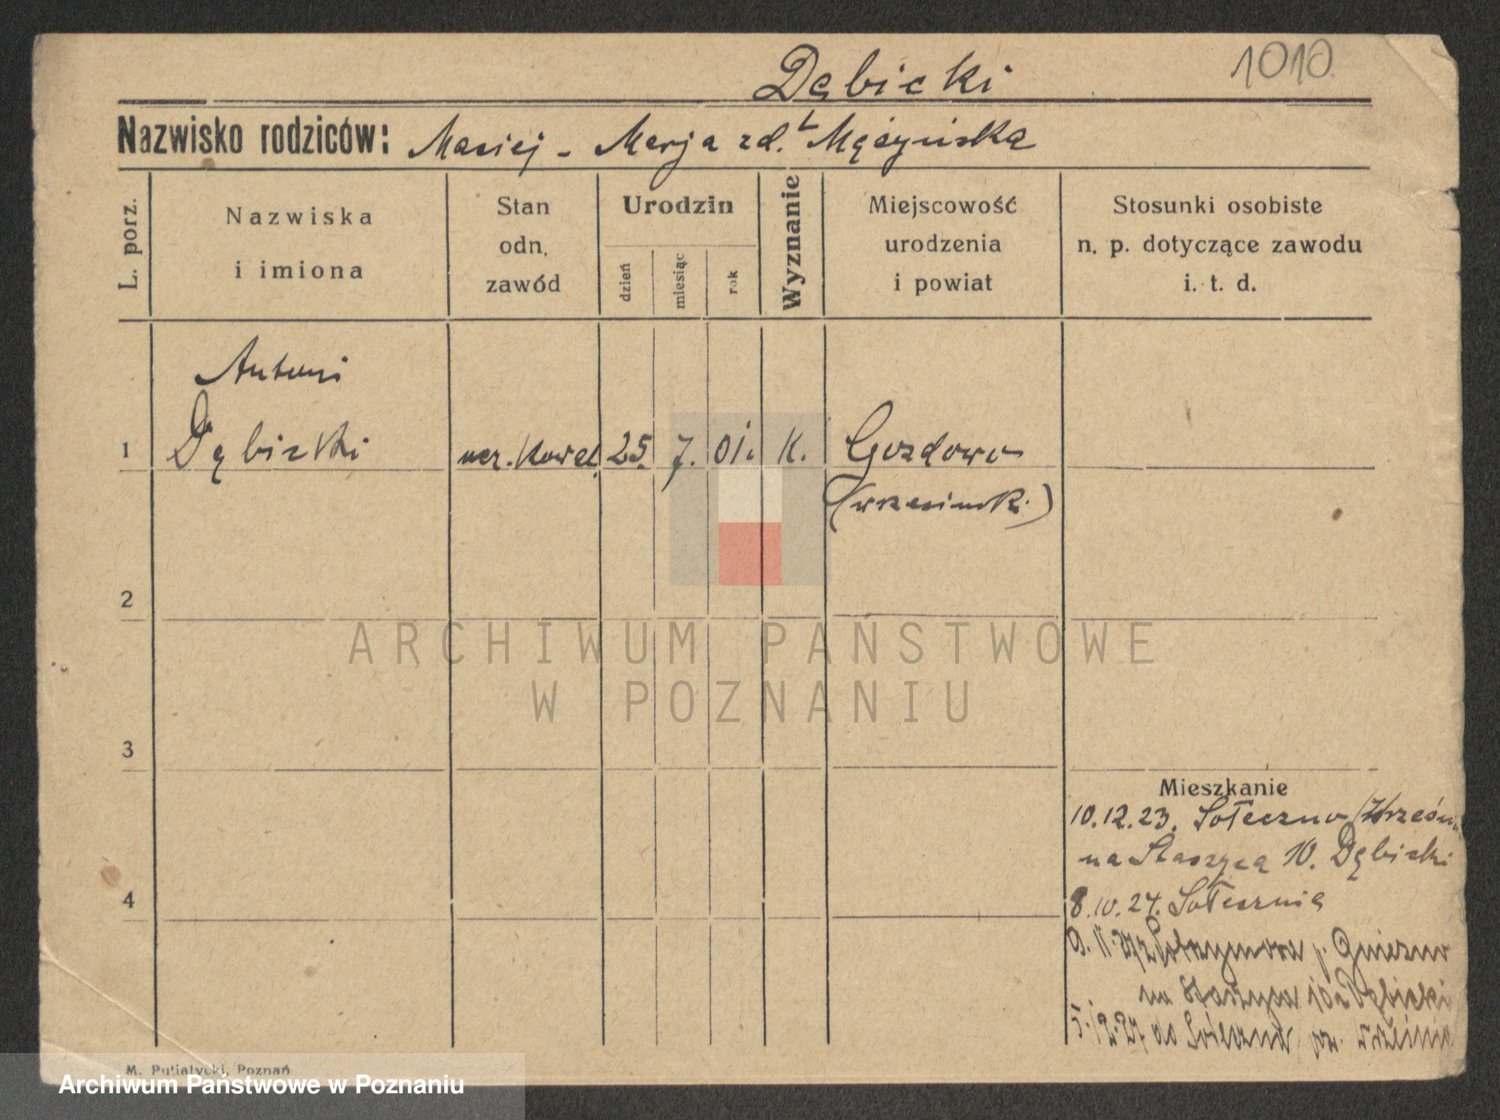 Dębicki
1010
Nazwisko rodziców: Maciej - Marja zd. Męczyńska
L. porz.
Nazwiska
i imiona
Stan
odn.
zawód
Urodzin
dzień
miesiąc
rok
Wyznanie
Miejscowość
urodzenia
i powiat
Stosunki osobiste
n. p. dotyczące zawodu
i. t. d.
Antoni
1 Dębicki ucz. kowal. 25. 7. 01. K. Gozdowo
(wrzesiński)
2
3
4
Mieszkanie
10.12.23. Sołeczno
na Staszyca 10. Dębicki
8.10.24. Sołecznia
p. Gniezno
na Staszyca 10 Dębicki
do
M. Putiatycki, Poznań
ARCHIWUM PAŃSTWOWE
W POZNANIU
Archiwum Państwowe w Poznaniu